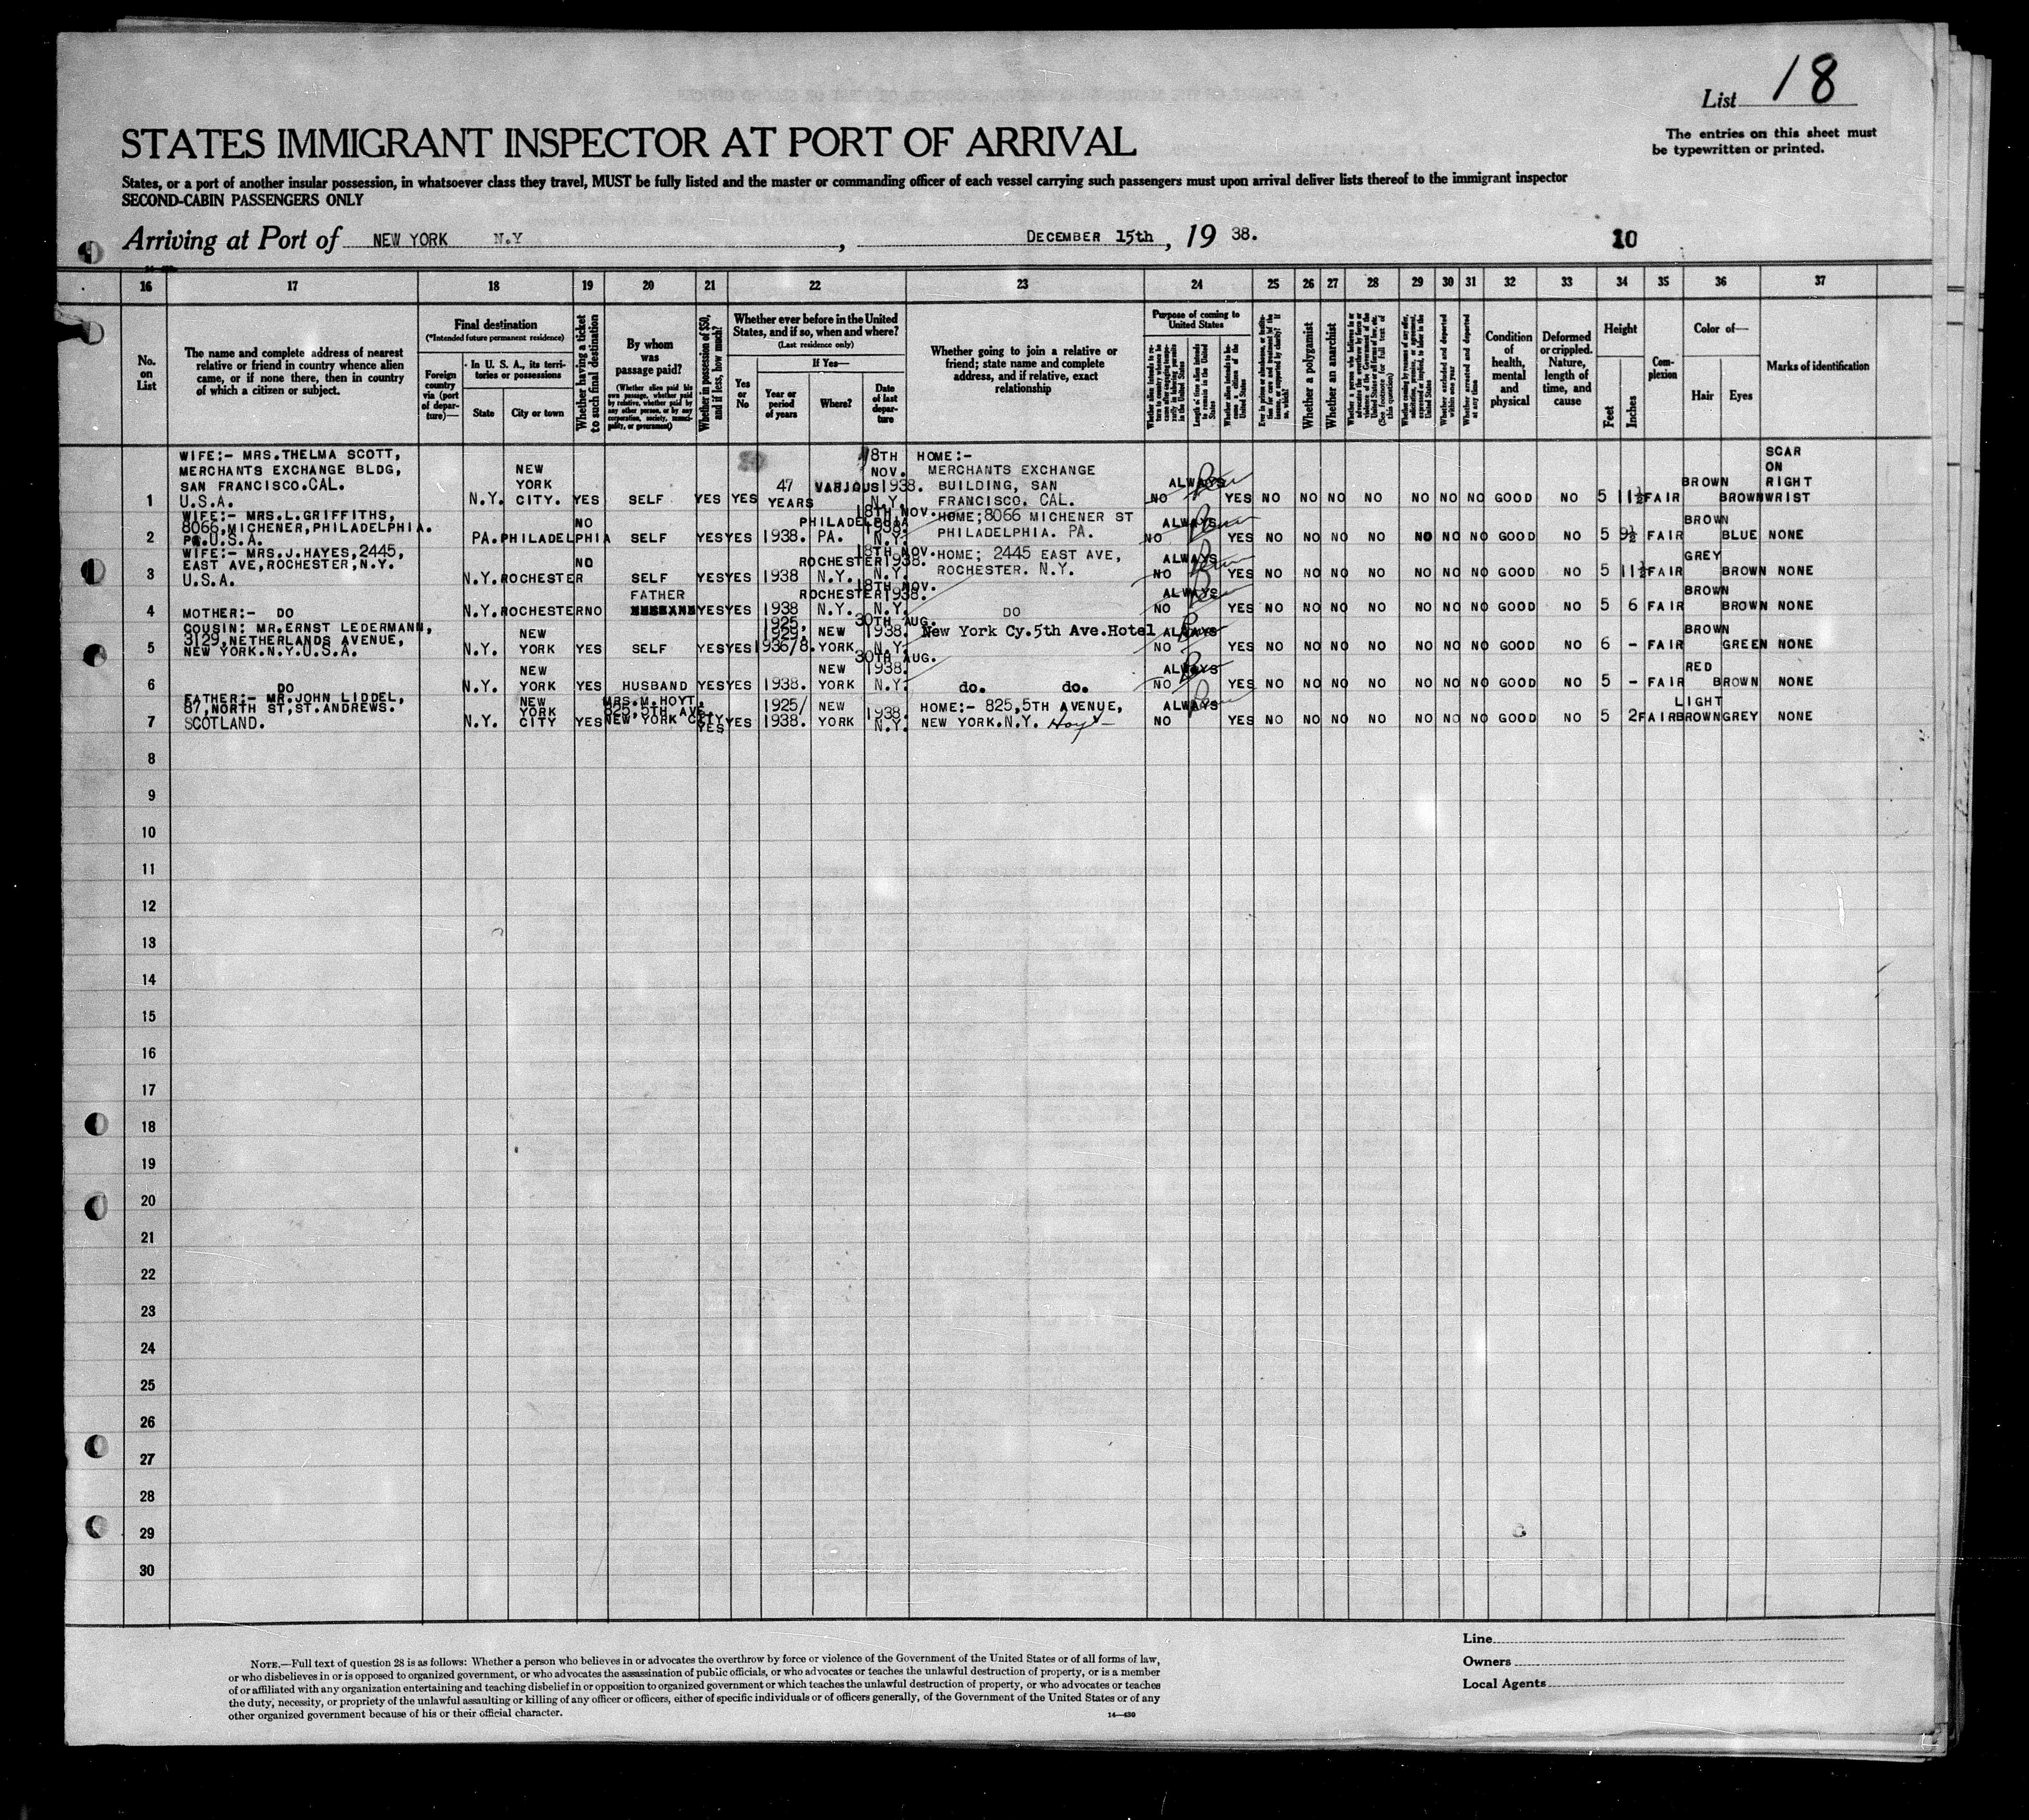 List 18
The entries on this sheet must
be typewritten or printed.
STATES IMMIGRANT INSPECTOR AT PORT OF ARRIVAL
States, or a port of another insular possession, in whatsoever class they travel, MUST be fully listed and the master or commanding officer of each vessel carrying such passengers must upon arrival deliver lists thereof to the immigrant inspector
SECOND-CABIN PASSENGERS ONLY
Arriving at Port of NEW YORK N.Y , DECEMBER 15th , 19 38. 10
16 17 18 19 20 21 22 23 24 25 26 27 28 29 30 31 32 33 34 35 36 37
No. on List
The name and complete address of nearest relative or friend in country whence alien came, or if none there, then in country of which a citizen or subject.
Final destination
(*Intended future permanent residence)
Foreign country via (port of departure)—
In U. S. A., its territories or possessions
State
City or town
Whether having a ticket to such final destination
By whom was passage paid?
(Whether alien paid his own passage, whether paid by relative, whether paid by any other person, or by any corporation, society, municipality, or government)
Whether in possession of $50, and if less, how much?
Whether ever before in the United States, and if so, when and where?
(Last residence only)
Yes or No
If Yes—
Year or period of years
Where?
Date of last departure
Whether going to join a relative or friend; state name and complete address, and if relative, exact relationship
Purpose of coming to United States
Length of time alien intends to remain in the United States
Whether alien intends to become a citizen of the United States
Whether a polygamist
Whether an anarchist
(See footnote for full text of this question)
Whether excluded and deported within one year
Whether arrested and deported at any time
Condition of health, mental and physical
Deformed or crippled. Nature, length of time, and cause
Height
Feet
Inches
Complexion
Color of—
Hair
Eyes
Marks of identification
1 WIFE:- MRS.THELMA SCOTT, MERCHANTS EXCHANGE BLDG, SAN FRANCISCO.CAL. U.S.A. N.Y. NEW YORK CITY. YES SELF YES YES 47 YEARS VARIOUS 18TH NOV. 1938. N.Y. HOME:- MERCHANTS EXCHANGE BUILDING, SAN FRANCISCO. CAL. NO ALWAYS YES NO NO NO NO NO NO NO GOOD NO 5 11½ FAIR BROWN BROWN SCAR ON RIGHT WRIST
2 WIFE:- MRS.L.GRIFFITHS, 8066,MICHENER,PHILADELPHIA. PA.U.S.A. PA. PHILADELPHIA NO SELF YES YES 1938. PHILADELPHIA PA. 18TH NOV. 1938. N.Y. HOME;8066 MICHENER ST PHILADELPHIA. PA. NO ALWAYS YES NO NO NO NO NO NO NO GOOD NO 5 9½ FAIR BROWN BLUE NONE
3 WIFE:- MRS.J.HAYES,2445, EAST AVE,ROCHESTER,N.Y. U.S.A. N.Y. ROCHESTER NO SELF YES YES 1938 ROCHESTER N.Y. 18TH NOV. 1938. N.Y. HOME; 2445 EAST AVE, ROCHESTER. N.Y. NO ALWAYS YES NO NO NO NO NO NO NO GOOD NO 5 11½ FAIR GREY BROWN NONE
4 MOTHER:- DO N.Y. ROCHESTER NO FATHER YES YES 1938 ROCHESTER N.Y. 18TH NOV. 1938. N.Y. DO NO ALWAYS YES NO NO NO NO NO NO NO GOOD NO 5 6 FAIR BROWN BROWN NONE
5 COUSIN: MR.ERNST LEDERMANN, 3129,NETHERLANDS AVENUE, NEW YORK.N.Y.U.S.A. N.Y. NEW YORK YES SELF YES YES 1925, 1929, 1936/8. NEW YORK 30TH AUG. 1938. N.Y. New York Cy.5th Ave.Hotel NO ALWAYS YES NO NO NO NO NO NO NO GOOD NO 6 - FAIR BROWN GREEN NONE
6 DO N.Y. NEW YORK YES HUSBAND YES YES 1938. NEW YORK 30TH AUG. 1938. N.Y. do. do. NO ALWAYS YES NO NO NO NO NO NO NO GOOD NO 5 - FAIR RED BROWN NONE
7 FATHER:- MR.JOHN LIDDEL, 87,NORTH ST,ST.ANDREWS. SCOTLAND. N.Y. NEW YORK CITY YES MRS.M.HOYT, 825,5TH AVE. NEW YORK CITY YES YES 1925/ 1938. NEW YORK 1938. N.Y. HOME:- 825,5TH AVENUE, NEW YORK.N.Y. Hoyt— NO ALWAYS YES NO NO NO NO NO NO NO GOOD NO 5 2 FAIR LIGHT BROWN GREY NONE
8
9
10
11
12
13
14
15
16
17
18
19
20
21
22
23
24
25
26
27
28
29
30
NOTE.—Full text of question 28 is as follows: Whether a person who believes in or advocates the overthrow by force or violence of the Government of the United States or of all forms of law,
or who disbelieves in or is opposed to organized government, or who advocates the assassination of public officials, or who advocates or teaches the unlawful destruction of property, or is a member
of or affiliated with any organization entertaining and teaching disbelief in or opposition to organized government or which teaches the unlawful destruction of property, or who advocates or teaches
the duty, necessity, or propriety of the unlawful assaulting or killing of any officer or officers, either of specific individuals or of officers generally, of the Government of the United States or of any
other organized government because of his or their official character.
14—430
Line
Owners
Local Agents